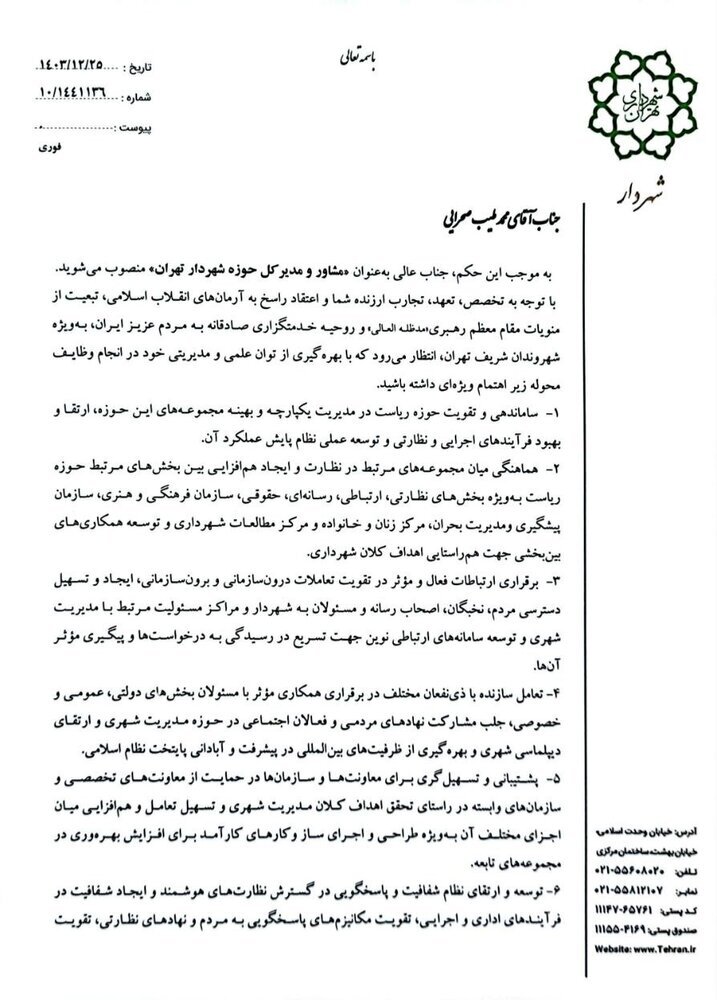 باسمه تعالی
تاریخ : ۱۴۰۳/۱۲/۲۵
شماره : ۱۰/۱۴۴۱۱۳۶
پیوست : ۰
فوری
شهرداری تهران
شهردار
جناب آقای محمد طیب صحرایی
به موجب این حکم، جناب عالی به‌عنوان «مشاور و مدیرکل حوزه شهردار تهران» منصوب می‌شوید.
با توجه به تخصص، تعهد، تجارب ارزنده شما و اعتقاد راسخ به آرمان‌های انقلاب اسلامی، تبعیت از
منویات مقام معظم رهبری«مدظله العالی» و روحیه خدمتگزاری صادقانه به مردم عزیز ایران، به‌ویژه
شهروندان شریف تهران، انتظار می‌رود که با بهره‌گیری از توان علمی و مدیریتی خود در انجام وظایف
محوله زیر اهتمام ویژه‌ای داشته باشید.
۱- ساماندهی و تقویت حوزه ریاست در مدیریت یکپارچه و بهینه مجموعه‌های این حوزه، ارتقا و
بهبود فرآیندهای اجرایی و نظارتی و توسعه عملی نظام پایش عملکرد آن.
۲- هماهنگی میان مجموعه‌های مرتبط در نظارت و ایجاد هم‌افزایی بین بخش‌های مرتبط حوزه
ریاست به‌ویژه بخش‌های نظارتی، ارتباطی، رسانه‌ای، حقوقی، سازمان فرهنگی و هنری، سازمان
پیشگیری ومدیریت بحران، مرکز زنان و خانواده و مرکز مطالعات شهرداری و توسعه همکاری‌های
بین‌بخشی جهت هم‌راستایی اهداف کلان شهرداری.
۳- برقراری ارتباطات فعال و مؤثر در تقویت تعاملات درون‌سازمانی و برون‌سازمانی، ایجاد و تسهیل
دسترسی مردم، نخبگان، اصحاب رسانه و مسئولان به شهردار و مراکز مسئولیت مرتبط با مدیریت
شهری و توسعه سامانه‌های ارتباطی نوین جهت تسریع در رسیدگی به درخواست‌ها و پیگیری مؤثر
آن‌ها.
۴- تعامل سازنده با ذی‌نفعان مختلف در برقراری همکاری مؤثر با مسئولان بخش‌های دولتی، عمومی و
خصوصی، جلب مشارکت نهادهای مردمی و فعالان اجتماعی در حوزه مدیریت شهری و ارتقای
دیپلماسی شهری و بهره‌گیری از ظرفیت‌های بین‌المللی در پیشرفت و آبادانی پایتخت نظام اسلامی.
۵- پشتیبانی و تسهیل‌گری برای معاونت‌ها و سازمان‌ها در حمایت از معاونت‌های تخصصی و
سازمان‌های وابسته در راستای تحقق اهداف کلان مدیریت شهری و تسهیل تعامل و هم‌افزایی میان
اجزای مختلف آن به‌ویژه طراحی و اجرای ساز وکارهای کارآمد برای افزایش بهره‌وری در
مجموعه‌های تابعه.
۶- توسعه و ارتقای نظام شفافیت و پاسخگویی در گسترش نظارت‌های هوشمند و ایجاد شفافیت در
فرآیندهای اداری و اجرایی، تقویت مکانیزم‌های پاسخگویی به مردم و نهادهای نظارتی، تقویت
آدرس: خیابان وحدت اسلامی،
خیابان بهشت، ساختمان مرکزی
تلفن: ۰۲۱-۵۵۶۰۸۰۲۰
نمابر: ۰۲۱-۵۵۸۱۲۱۰۷
کد پستی: ۱۱۱۴۷-۶۵۷۶۱
صندوق پستی: ۱۱۱۵۵-۴۱۶۹
Website: www.Tehran.ir